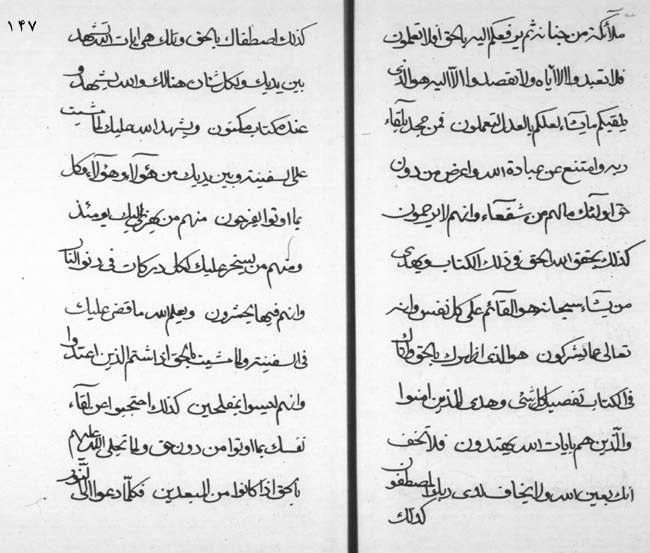 ملآئكة من جنابه ثم يرفعكم اليه بالحق افلا تعملون
فلا تعبدوا الا اياه ولا تقصدوا الا اليه هو الذى
يلقيكم ما يشآء لعلكم بالعدل لتعملون فمن جحد بلقآء
ربه وامتنع عن عبادة الله واعرض من دون
حق اولئك مالهم من شفعآء وانهم لا يرحمون
كذلك يحقق الله الحق فى ذلك الكتاب ويهدى
من يشآء سبحانه هو القآئم على كل نفس وانه
تعالى عما يشركون هو الذى اظهرك بالحق واتاك
فى الكتاب تفصيل كل شئ وهدى للذين امنوا
والذين هم بايات الله يهتدون فلا تخف
انك بعين الله ولا يخاف لدى ربك المصطفون
كذلك
١٤٧
كذلك اصطفاك بالحق وتلك هى ايات الله تشهد
بين يديك ولكل شان هنالك والله يشهد و
عنده كتاب مكنون ويشهد الله عليك لما مشيت
على السفينة وبين يديك من هؤلآء وهؤلآء وكل
بما اوتوا يفرحون منهم من يومئذ
ومنهم من يسخر عليك لكل دركات فى النار
وانهم فيها يحشرون ويعلم الله ما قضى عليك
فى السفينة ولما مشيت بالحق اذا شتم الذين اعتدوا
وانهم ليسوا بمفلحين كذلك احتجبوا عن لقآء
نفسك بما اوتوا من دون حق ولما تجلى الله عليهم
بالحق اذا كانوا من المبعدين فكلما دعوا الى النور